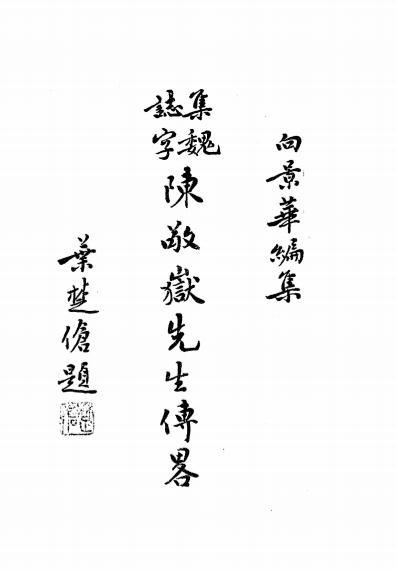 向景華編集
集魏誌字
陳敬嶽先生傳畧
葉楚傖題